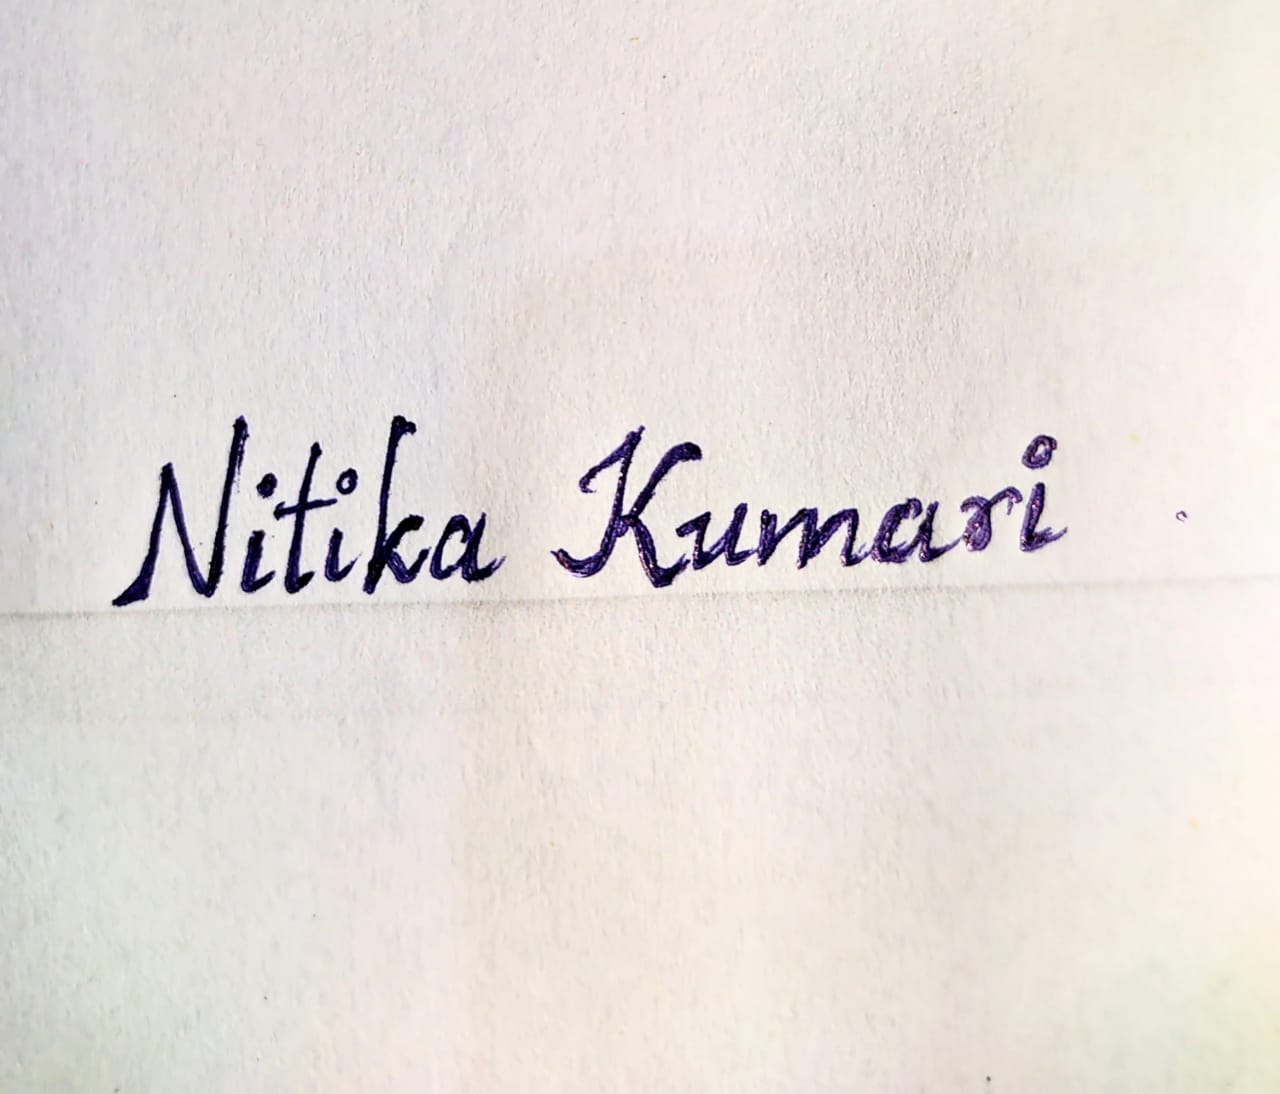 Nitika Kumari